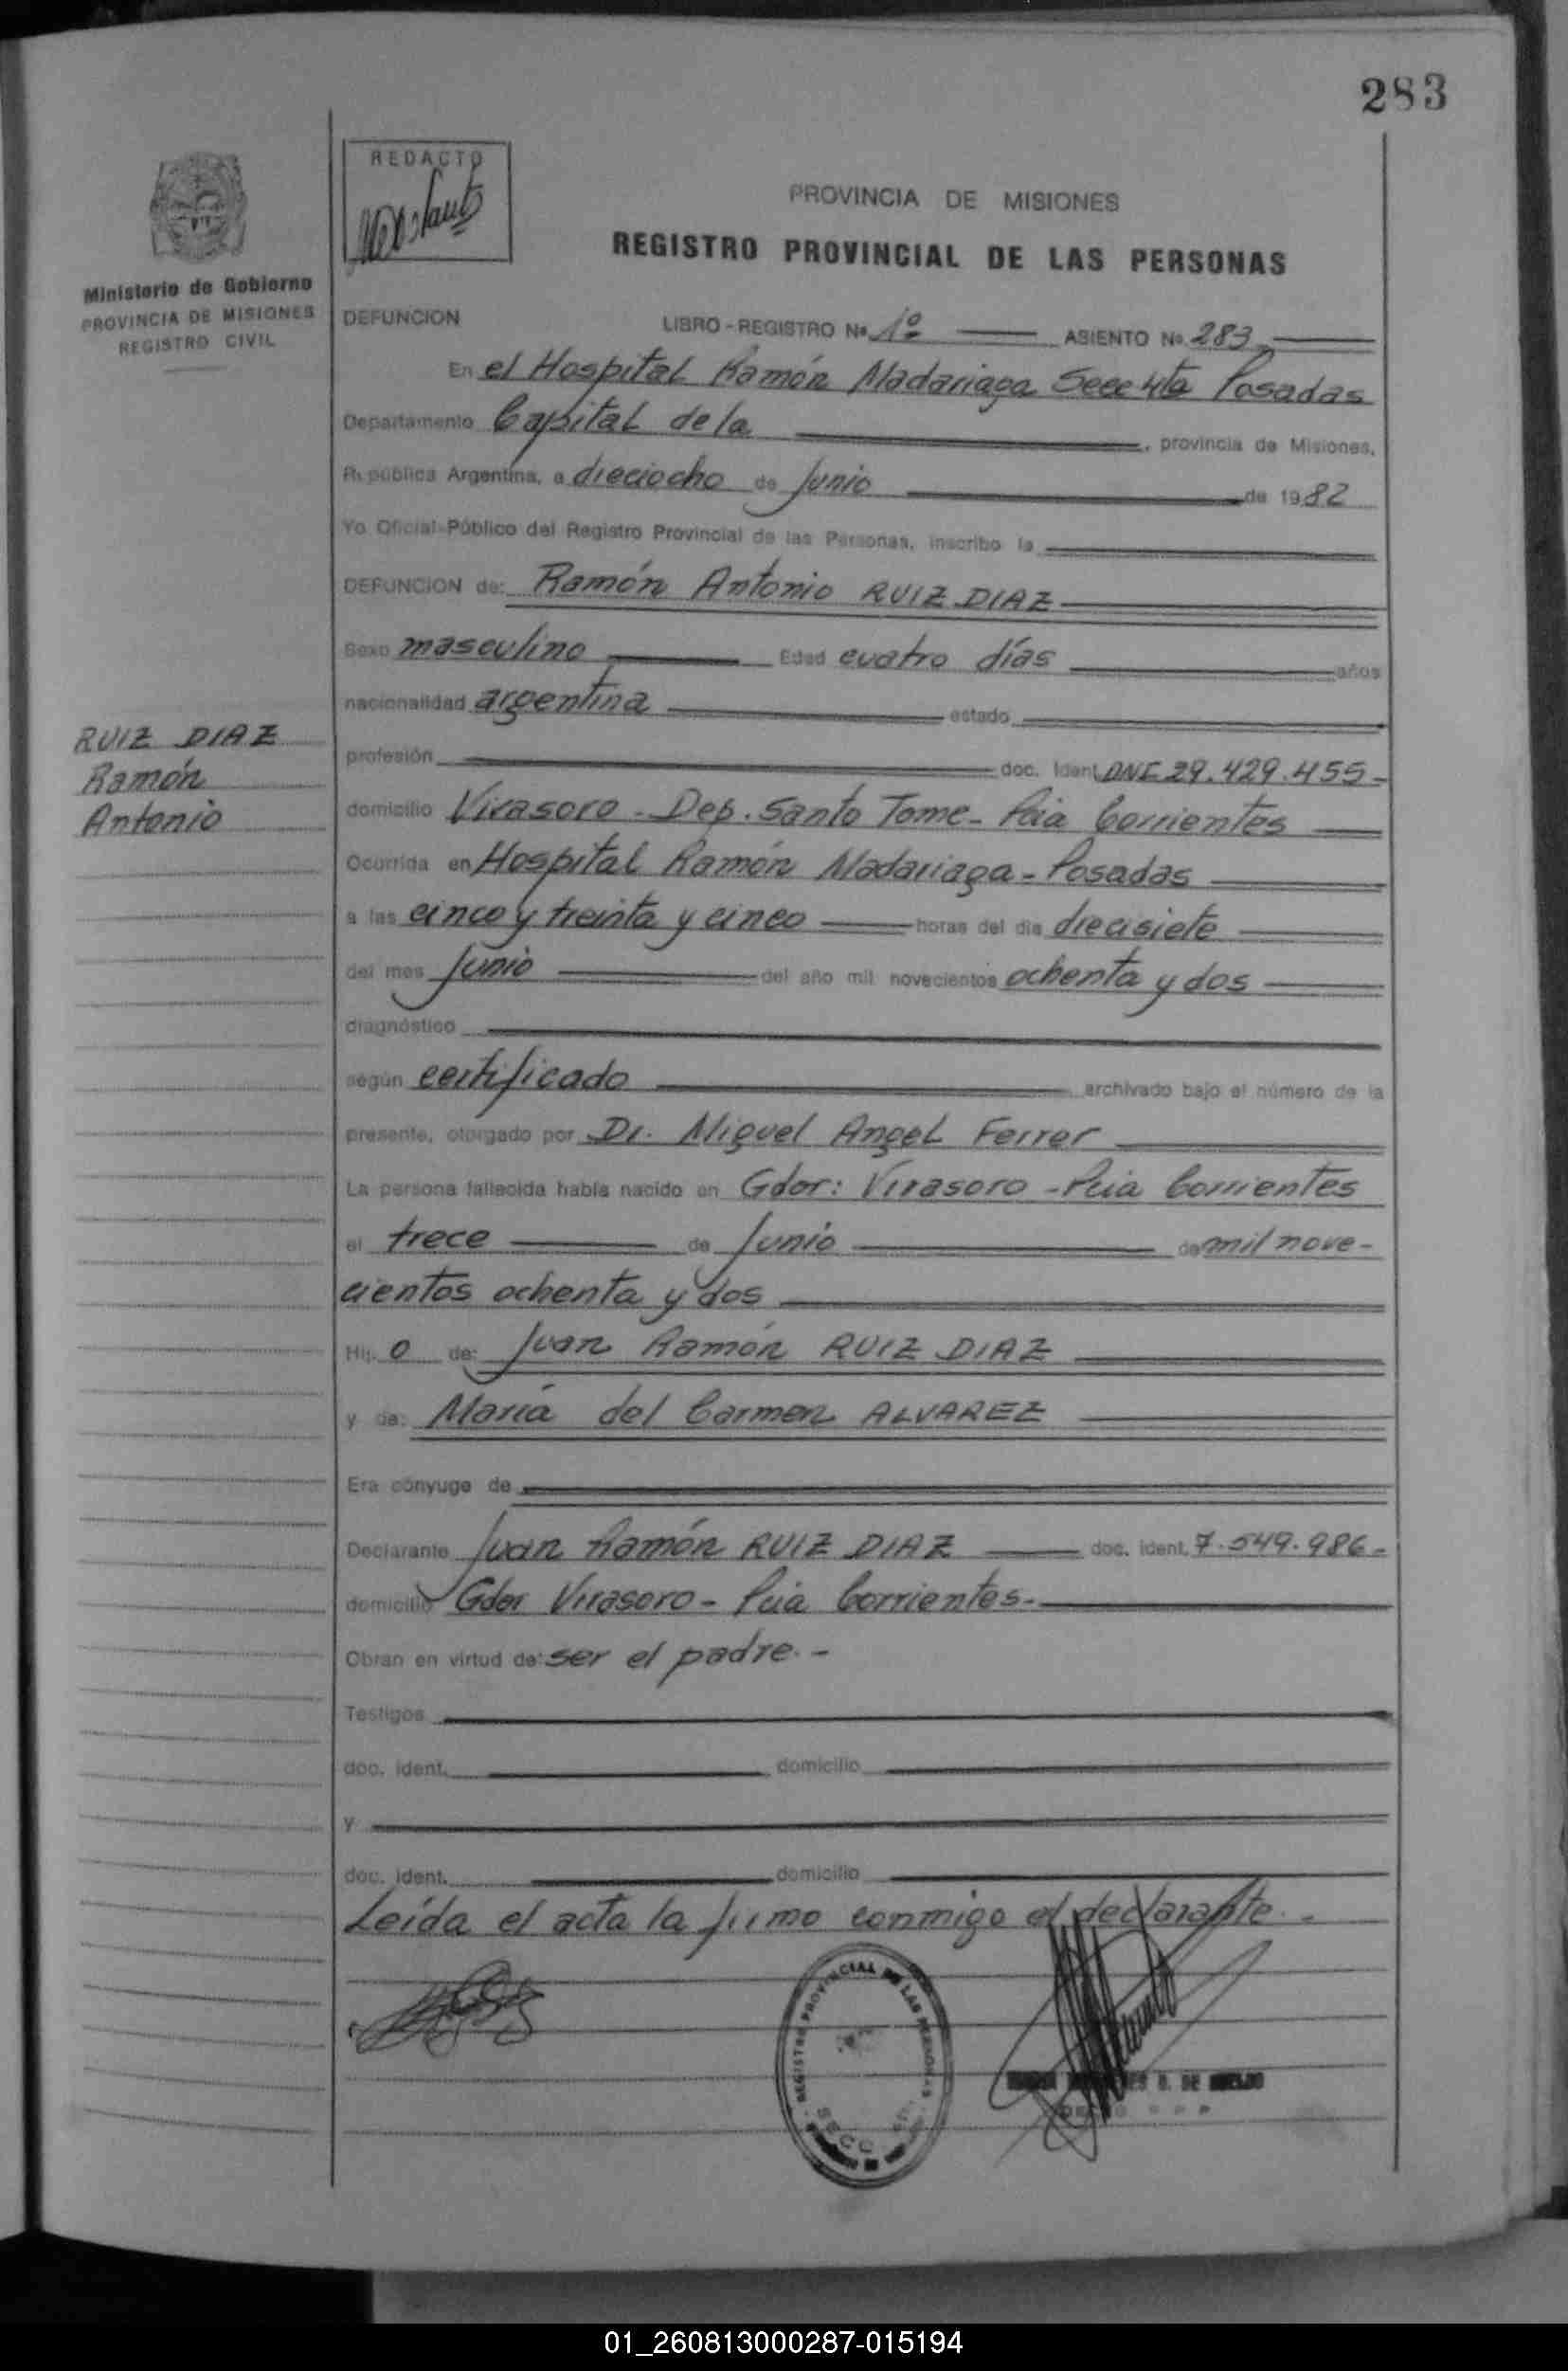 283
REDACTO
PROVINCIA DE MISIONES
REGISTRO PROVINCIAL DE LAS PERSONAS
Ministerio de Gobierno
PROVINCIA DE MISIONES
REGISTRO CIVIL
DEFUNCION LIBRO - REGISTRO No 1º ASIENTO No. 283
En el Hospital Ramón Madariaga Secc 4ta Posadas
Departamento Capital de la , provincia de Misiones,
República Argentina, a dieciocho de Junio de 1982
Yo Oficial Público del Registro Provincial de las Personas, inscribo la
DEFUNCION de: Ramón Antonio RUIZ DIAZ
Sexo masculino Edad cuatro días años
nacionalidad argentina estado
RUIZ DIAZ
Ramón
Antonio
profesión doc. Ident. DNI 29.429.455-
domicilio Virasoro - Dep. Santo Tome - Pcia Corrientes
Ocurrida en Hospital Ramón Madariaga - Posadas
a las cinco y treinta y cinco horas del día diecisiete
del mes Junio del año mil novecientos ochenta y dos
diagnóstico
según certificado archivado bajo el número de la
presente, otorgado por Dr. Miguel Angel Ferrer
La persona fallecida había nacido en Gdor: Virasoro - Pcia Corrientes
el trece de Junio de mil nove-
cientos ochenta y dos
Hij. o de: Juan Ramón RUIZ DIAZ
y de: María del Carmen ALVAREZ
Era cónyuge de
Declarante Juan Ramón RUIZ DIAZ doc. ident. 7.549.986-
domicilio Gdor Virasoro - Pcia Corrientes.
Obran en virtud de: ser el padre. -
Testigos
doc. ident. domicilio
y
doc. ident. domicilio
Leída el acta la firmo conmigo el declarante. -
REGISTRO PROVINCIAL DE LAS PERSONAS
SECC
01_260813000287-015194